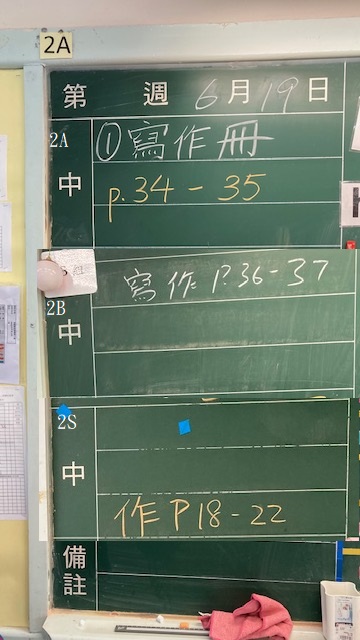 2A
第 週 6月19日
2A
中
①寫作冊
p.34-35
組
2B
中
寫作 P.36-37
2S
中
作 P18-22
備註